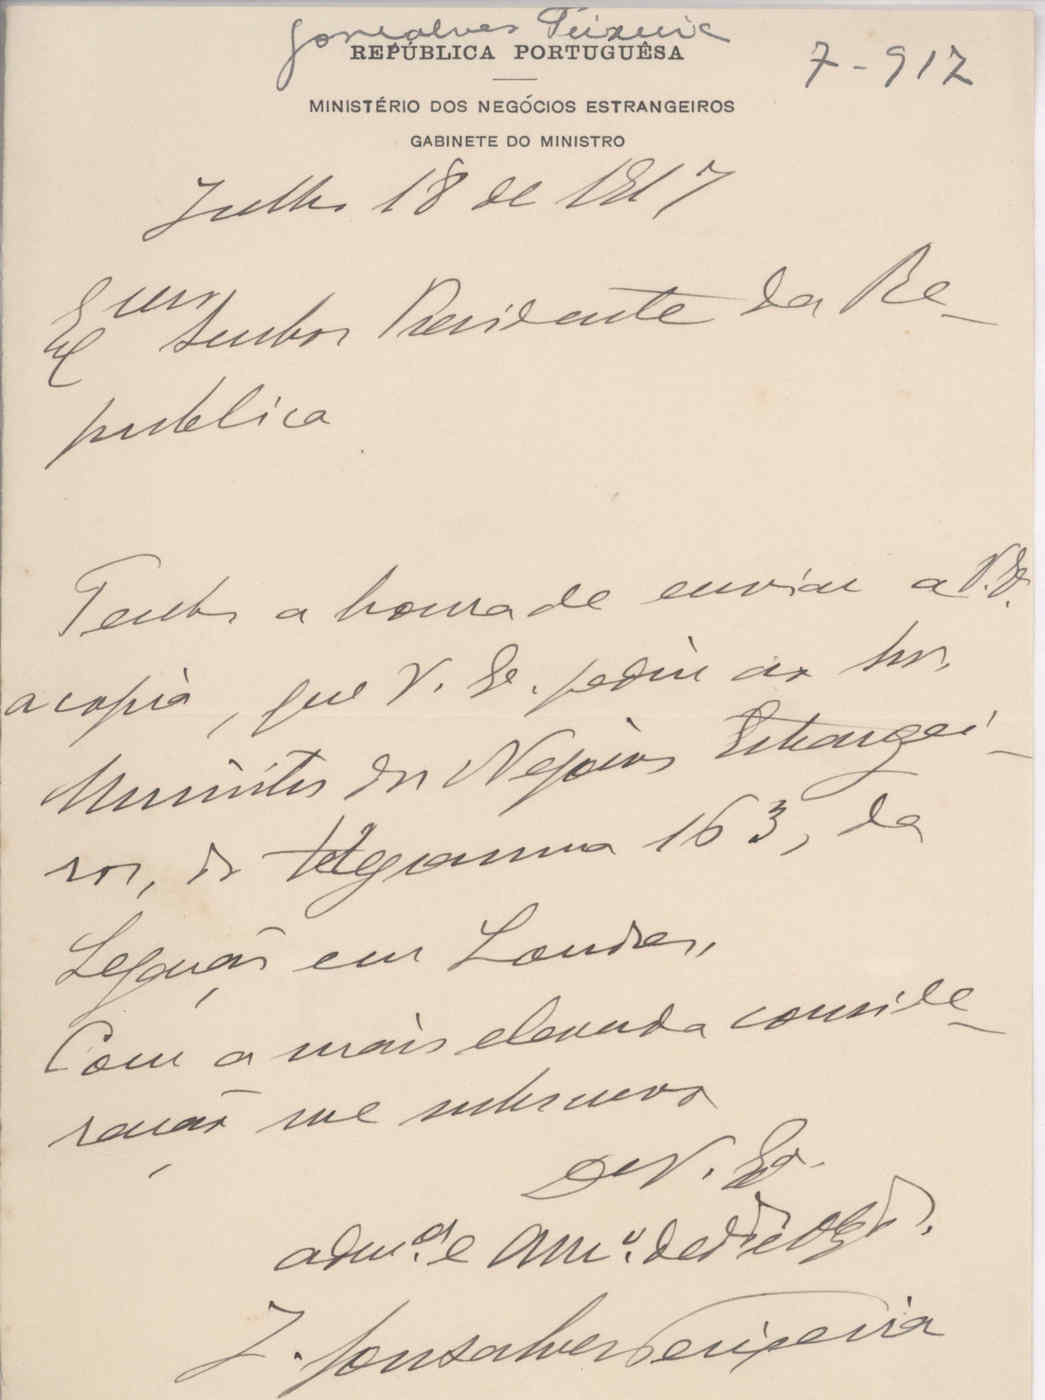 Gonçalves Teixeira
REPÚBLICA PORTUGUÊSA
7-912
MINISTÉRIO DOS NEGÓCIOS ESTRANGEIROS
GABINETE DO MINISTRO
Julho 18 de 1917
Exmo Senhor Presidente da Re-
publica
Tenho a honra de enviar a V. Ex.
a copia, que V. Ex. pediu ao Snr.
Ministro dos Negocios Estrangei-
ros, do telegramma 163, da
Legação em Londres.
Com a mais elevada conside-
ração me subscrevo
De V. Ex.
adm.or e Am.o ded.o e obg.do
J. Gonsalves Teixeira